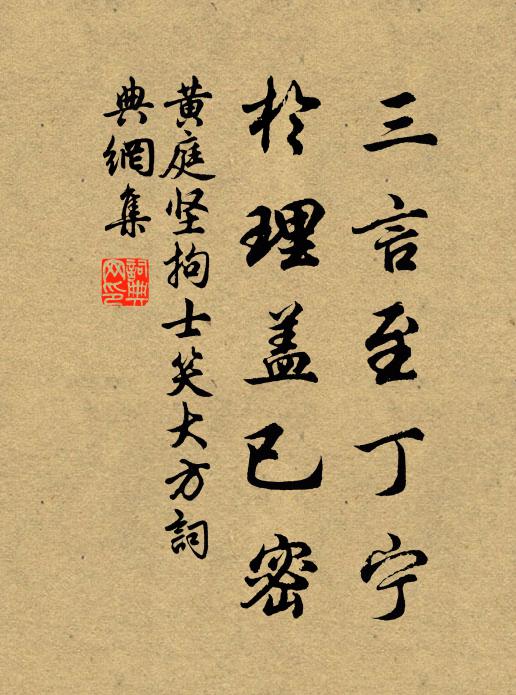 三言至丁宁
於理盖已密
黄庭坚拘士笑大方詞
典網集
詞典
网印